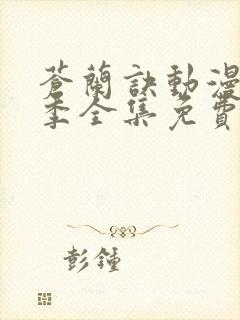 蒼蘭訣動漫
季全集免費
彭鍾